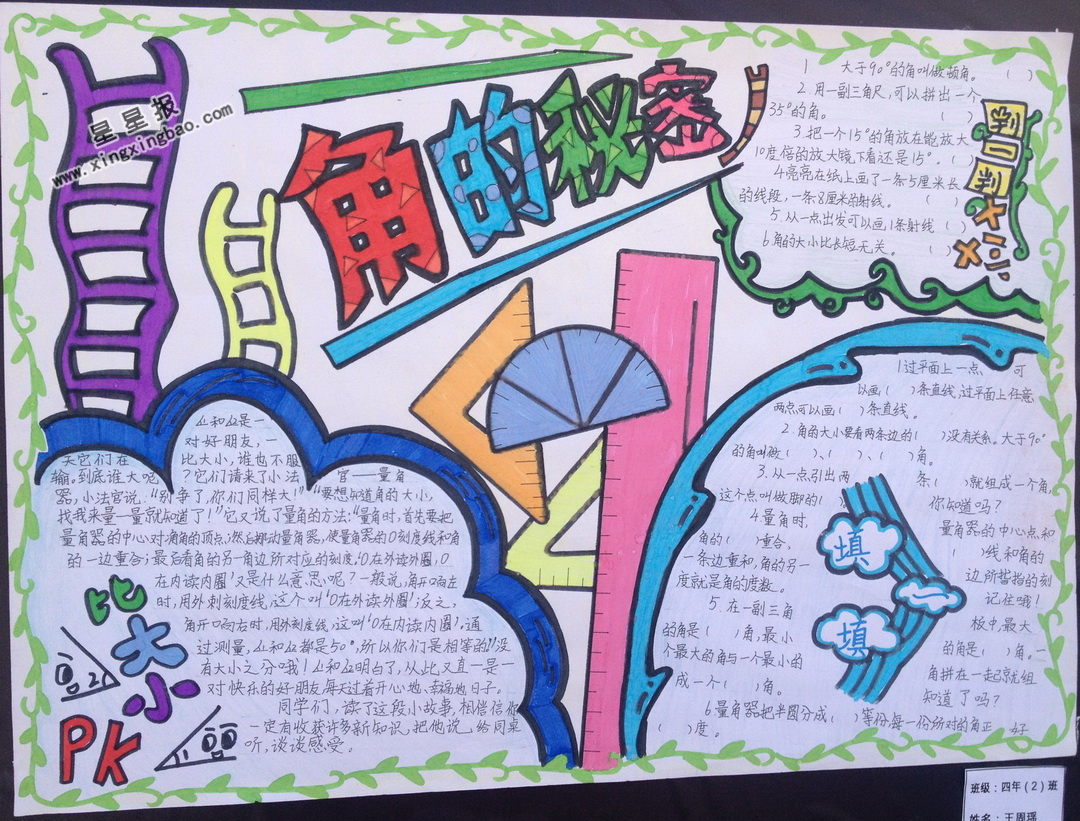 星星报
www.xingxingbao.com
角的秘密
1 大于90°的角叫做顿角。 ( )
2.用一副三角尺,可以拼出一个
35°的角。 ( )
3把一个15°的角放在能放大
10度倍的放大镜下看还是15°。( )
4亮亮在纸上画了一条5厘米长
的线段,一条8厘米的射线。 ( )
5.从一点出发可以画1条射线 ( )
6角的大小比长短无关。 ( )
判回判
∠1和∠2是一
对好朋友,一
天它们在 比大小,谁也不服
输。到底谁大呢 ?它们请来了小法 官——量角
器,小法官说。“别争了,你们同样大!”“要想知道角的大小,
找我来量一量就知道了!”它又说了量角的方法:“量角时,首先要把
量角器的中心对准角的顶点,然后挪动量角器,使量角器的0刻度线和角
的一边重合;最后看角的另一角边所对应的刻度,‘0在外读外圈,0
在内读内圈’又是什么意思呢?一般说,角开口向左
时,用外刺刻度线,这个叫‘0在外读外圈’反之,
角开口向右时,用外刻度线,这叫‘0在内读内圈’,通
过测量,∠1和∠2都是50°,所以你们是相等的!”没
有大小之分哦!∠1和∠2明白了,从此又直一是一
对快乐的好朋友每天过着开心地、幸福地日子。
同学们,读了这段小故事,相信信你
一定有收获许多新知识,把他说 给同桌
听,谈谈感受。
比大小
PK
1过平面上一点 可
以画( )条直线,过平面上任意
两点可以画( )条直线。
2.角的大小要看两条边的( )没有关系。大于90°
的角叫做( )、( )、( )角。
3.从一点引出两 条( )就组成一个角,
这个点叫做脚的( 你知道吗?
4.量角时, 量角器的中心点和
角的( )重合, ( )线和角的
一条边重和,角的另一 边所指指的刻
度就是角的度数。 记住哦!
5.在一副三角 板中,最大
的角是( )角,最小 的角是( )角。一
个最大的角与一个最小的 角拼在一起就组
成一个( )角。 知道了吗?
6量角器把半圆分成( )等份,每一份所对的角正 好
( )度。
填
填
班级:四年(2)班
姓名:王周瑶